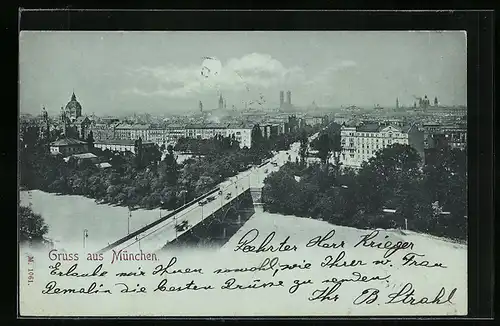 Gruss aus München
Geehrter Herr Krieger
Erlaube mir Ihnen sowohl, wie Ihrer w. Frau
Gemalin die besten Grüsse zu senden
Ihr B. Strahl
N. 1061.